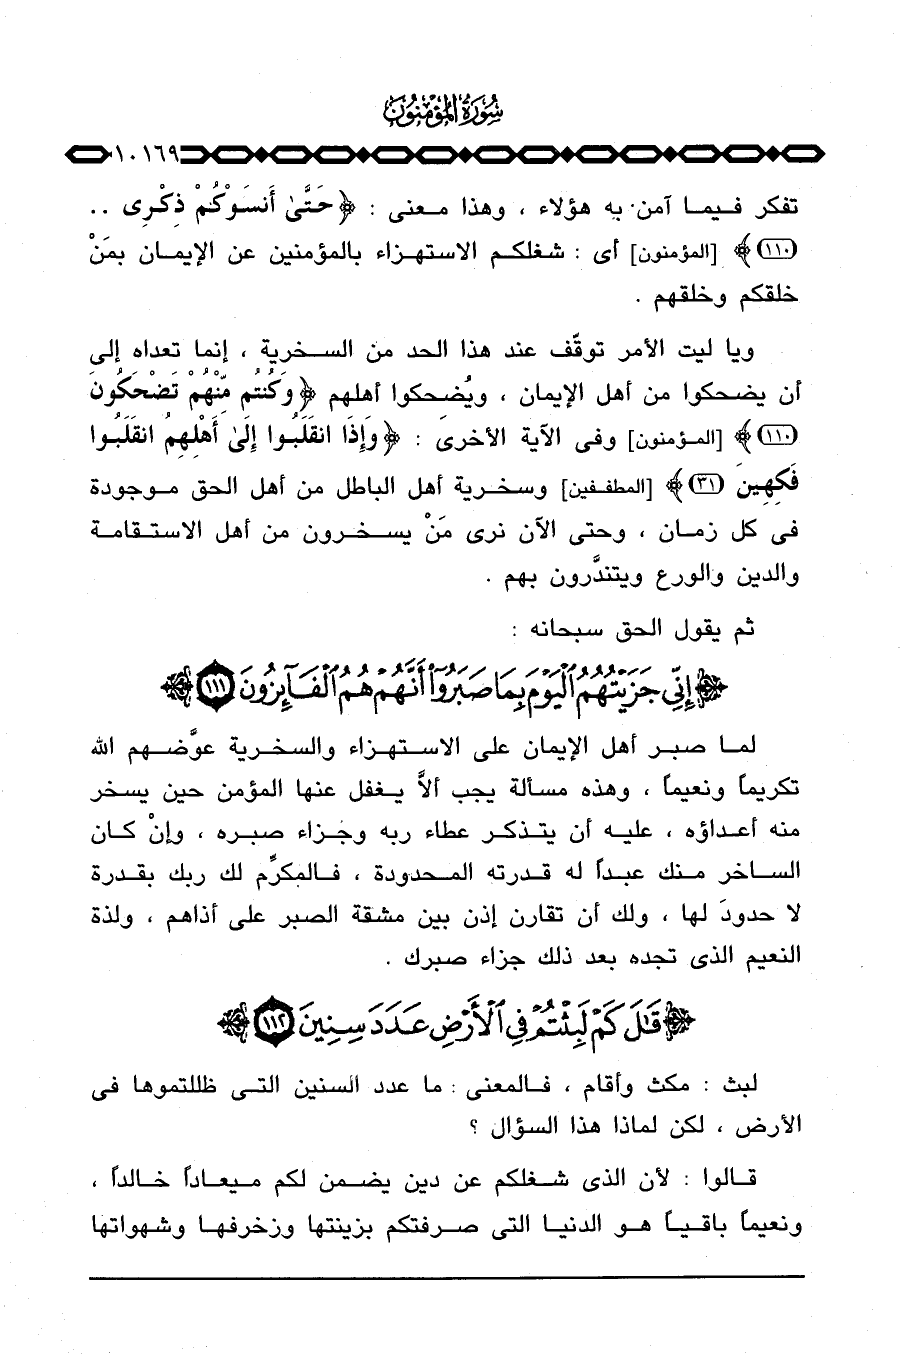 سُورَةُ المُؤْمِنُونَ
١٠١٦٩
تفكر فيما آمن به هؤلاء ، وهذا معنى : ﴿ حَتَّىٰ أَنسَوْكُمْ ذِكْرِى ..
(١١٠) ﴾ [المؤمنون] أى : شغلكم الاستهزاء بالمؤمنين عن الإيمان بمَنْ
خلقكم وخلقهم .
ويا ليت الأمر توقَّف عند هذا الحد من السخرية ، إنما تعداه إلى
أن يضحكوا من أهل الإيمان ، ويُضحكوا أهلهم ﴿ وَكُنتُم مِّنْهُمْ تَضْحَكُونَ
(١١٠) ﴾ [المؤمنون] وفى الآية الأخرى : ﴿ وَإِذَا انقَلَبُوا إِلَىٰ أَهْلِهِمُ انقَلَبُوا
فَكِهِينَ (٣١) ﴾ [المطففين] وسخرية أهل الباطل من أهل الحق موجودة
فى كل زمان ، وحتى الآن نرى مَنْ يسخرون من أهل الاستقامة
والدين والورع ويتندَّرون بهم .
ثم يقول الحق سبحانه :
﴿ إِنِّي جَزَيْتُهُمُ ٱلْيَوْمَ بِمَا صَبَرُوٓا أَنَّهُمْ هُمُ ٱلْفَآئِزُونَ (١١١) ﴾
لما صبر أهل الإيمان على الاستهزاء والسخرية عوَّضهم الله
تكريماً ونعيماً ، وهذه مسألة يجب ألاَّ يغفل عنها المؤمن حين يسخر
منه أعداؤه ، عليه أن يتذكر عطاء ربه وجزاء صبره ، وإنْ كان
الساخر منك عبداً له قدرته المحدودة ، فالمكرِّم لك ربك بقدرة
لا حدودَ لها ، ولك أن تقارن إذن بين مشقة الصبر على أذاهم ، ولذة
النعيم الذى تجده بعد ذلك جزاء صبرك .
﴿ قَٰلَ كَمْ لَبِثْتُمْ فِي ٱلْأَرْضِ عَدَدَ سِنِينَ (١١٢) ﴾
لبث : مكث وأقام ، فالمعنى : ما عدد السنين التى ظللتموها فى
الأرض ، لكن لماذا هذا السؤال ؟
قالوا : لأن الذى شغلكم عن دين يضمن لكم ميعاداً خالداً ،
ونعيماً باقياً هو الدنيا التى صرفتكم بزينتها وزخرفها وشهواتها